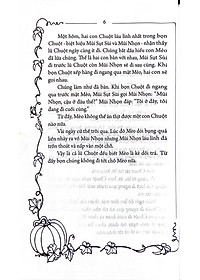 6
Một hôm, hai con Chuột lâu lâu nhất trong bọn
Chuột - biệt hiệu Mũi Sụt Sùi và Mũi Nhọn - nhận thấy
lũ Chuột ngày càng ít đi. Chúng bắt đầu hiểu con Mèo
đã lừa chúng. Thế là, hai con bàn với nhau, Mũi Sụt Sùi
đi trước lũ Chuột còn Mũi Nhọn sẽ đi sau cùng. Khi bọn
bọn Chuột xếp hàng đi ngang qua mặt Mèo, hai con sẽ
gọi nhau.
Chúng làm như đã bàn. Khi bọn Chuột đi ngang
qua trước mặt Mèo, Mũi Sụt Sùi gọi Mũi Nhọn: "Mũi
Nhọn, cậu ở đâu thế?" Mũi Nhọn đáp: "Tôi ở đây, tôi
đang đi cuối cùng."
Từ đấy, Mèo không thể ăn thịt được một con Chuột
nào nữa.
Vài ngày cứ thế trôi qua. Lúc đó Mèo đói bụng quá
liền nhảy ra vồ Mũi Nhọn nhưng Mũi Nhọn lanh lẹn đã
trốn thoát và nấp vào một chỗ.
Vậy là cả lũ Chuột đều biết Mèo là kẻ dối trá. Từ
đấy bọn chúng không đi tới chỗ Mèo nữa.